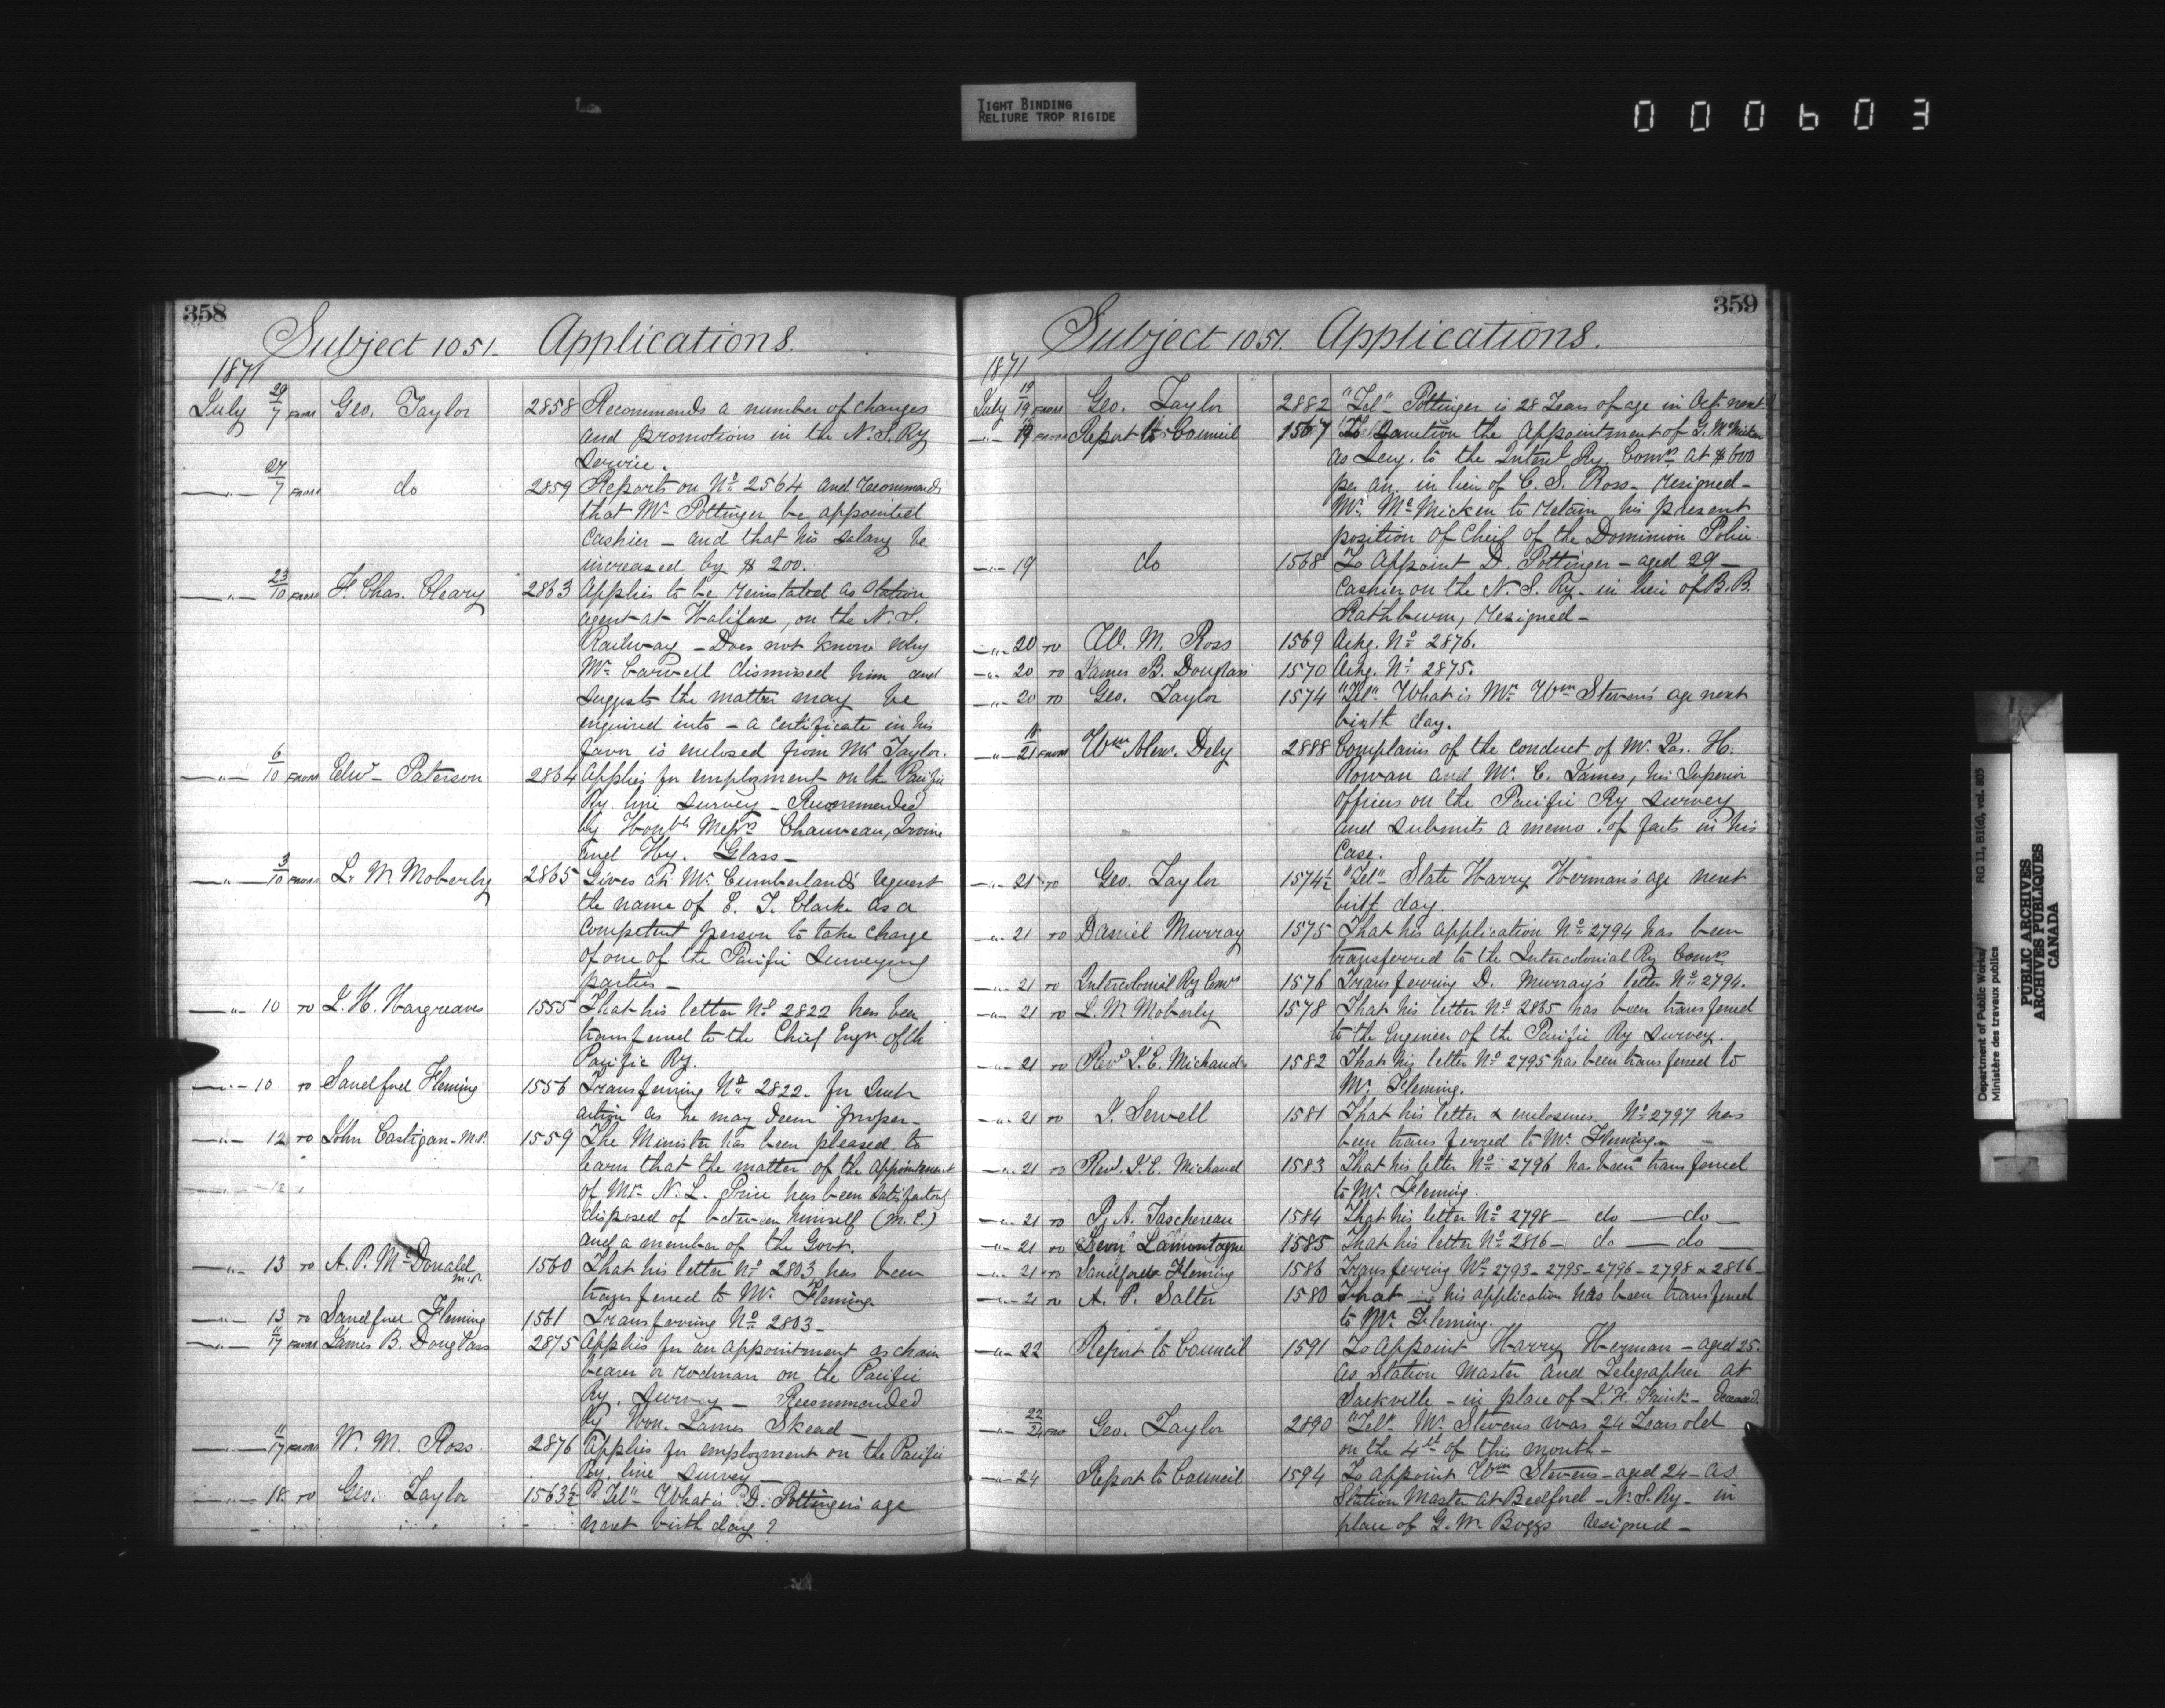 TIGHT BINDING
RELIURE TROP RIGIDE
000603
358
Subject 1051. Applications.
1871
July 29/7 FROM Geo. Taylor 2858 Recommends a number of changes
and promotions in the N. S. Ry
service.
" 27/7 FROM do 2859 Reports on No 2564 and recommends
that Mr Pottinger be appointed
Cashier - and that his salary be
increased by $ 200.
" 23/10 FROM F. Chas. Cleary 2863 Applies to be reinstated as Station
agent at Halifax, on the N. S.
Railway - Does not know why
Mr Carvell dismissed him and
suggests the matter may be
enquired into - a certificate in his
favor is enclosed from Mr Taylor.
" 6/10 FROM Edwd Paterson 2864 Applies for employment on the Pacific
Ry. line Survey - Recommended
by Honble Messrs Chauveau, Irvine
and Hy. Glass -
" 3/10 FROM L. M Moberly 2865 Gives at Mr Cumberland's request
the name of E. T. Clarke as a
Competent person to take charge
of one of the Pacific Surveying
parties -
" 10 TO L. H. Hargreaves 1555 That his letter No 2822 has been
transferred to the Chief Engr of th
Pacific Ry.
" 10 TO Sandford Fleming 1556 Transferring No 2822. for such
action as he may deem proper.
" 12 TO John Costigan - M.P. 1559 The Minister has been pleased to
learn that the matter of the appointment
" 12 of Mr N. L. Price has been satisfactorily
disposed of between himself (M. C.)
and a member of the Govt.
" 13 TO A. P. McDonald M.P. 1560 That his letter No 2803 has been
transferred to Mr Fleming.
" 13 TO Sandford Fleming 1561 Transferring No 2803 -
" 11/17 FROM James B. Douglass 2875 Applies for an appointment as chain
bearer or rodman on the Pacific
Ry. Survey - Recommended
by Hon. James Skead -
" 11/17 FROM W. M. Ross 2876 Applies for employment on the Pacific
Ry. line survey -
" 18 TO Geo. Taylor 1563½ "Tel" What is D. Pottinger's age
next birth day?
359
Subject 1051. Applications.
1871
July 19/19 FROM Geo. Taylor 2882 "Tel" Pottinger is 28 Years of age in Oct. next
" 19 Report to Council 1567 To Sanction the Appointment of G. McMicken
as Secy. to the Interl Ry. Comrs at $600
per an. in lieu of C. S. Ross - resigned -
Mr. McMicken to retain his present
position of Chief of the Dominion Police.
" 19 do 1568 To Appoint D. Pottinger - aged 29 -
Cashier on the N. S. Ry. in lieu of B. B.
Rathburn, resigned -
" 20 TO W. M. Ross 1569 Ackg. No 2876.
" 20 TO James B. Douglass 1570 Ackg. No 2875.
" 20 TO Geo. Taylor 1574 "Tel" What is Mr Wm Stevens' age next
birth day.
" 18/21 FROM Wm Alex. Dely 2888 Complains of the conduct of Mr. Jas. H.
Rowan and Mr. C. James, his Superior
Officers on the Pacific Ry survey
and submits a memo. of facts in his
Case.
" 21 TO Geo. Taylor 1574½ "Tel" State Harry Herman's age next
birth day.
" 21 TO Daniel Murray 1575 That his application No 2794 has been
transferred to the Intercolonial Ry Comrs
" 21 TO Intercolonial Ry Comrs 1576 Transferring D. Murray's letter No 2794.
" 21 TO L. M Moberly 1578 That his letter No 2865 has been transferred
to the Engineer of the Pacific Ry Survey.
" 21 TO Revd L. E. Michaud 1582 That his letter No 2795 has been transferred to
Mr. Fleming.
" 21 TO J. Sewell 1581 That his letter & enclosures No 2797 has
been transferred to Mr. Fleming -
" 21 TO Revd. L. E. Michaud 1583 That his letter No 2796 has been transferred
to Mr. Fleming.
" 21 TO P. A. Taschereau 1584 That his letter No 2798 - do - do -
" 21 TO Leon Lamontagne 1585 That his letter No 2816 - do - do -
" 21 TO Sandford Fleming 1586 Transferring No 2793 - 2795 - 2796 - 2798 & 2816 -
" 21 TO A. P. Salter 1580 That his application has been transferred
to Mr. Fleming.
" 22 Report to Council 1591 To Appoint Harry Herman - aged 25.
as Station Master and Telegrapher at
Sackville - in place of Deceased.
" 22/24 FROM Geo. Taylor 2890 "Tel" Mr. Stevens was 24 Years old
on the 4th of this month -
" 24 Report to Council 1594 To appoint Wm Stevens - aged 24 - as
Station Master at Bedford - N. S. Ry - in
place of G. M Boggs resigned -
Department of Public Works/
Ministère des travaux publics
RG 11, B1(d), vol. 805
PUBLIC ARCHIVES
ARCHIVES PUBLIQUES
CANADA